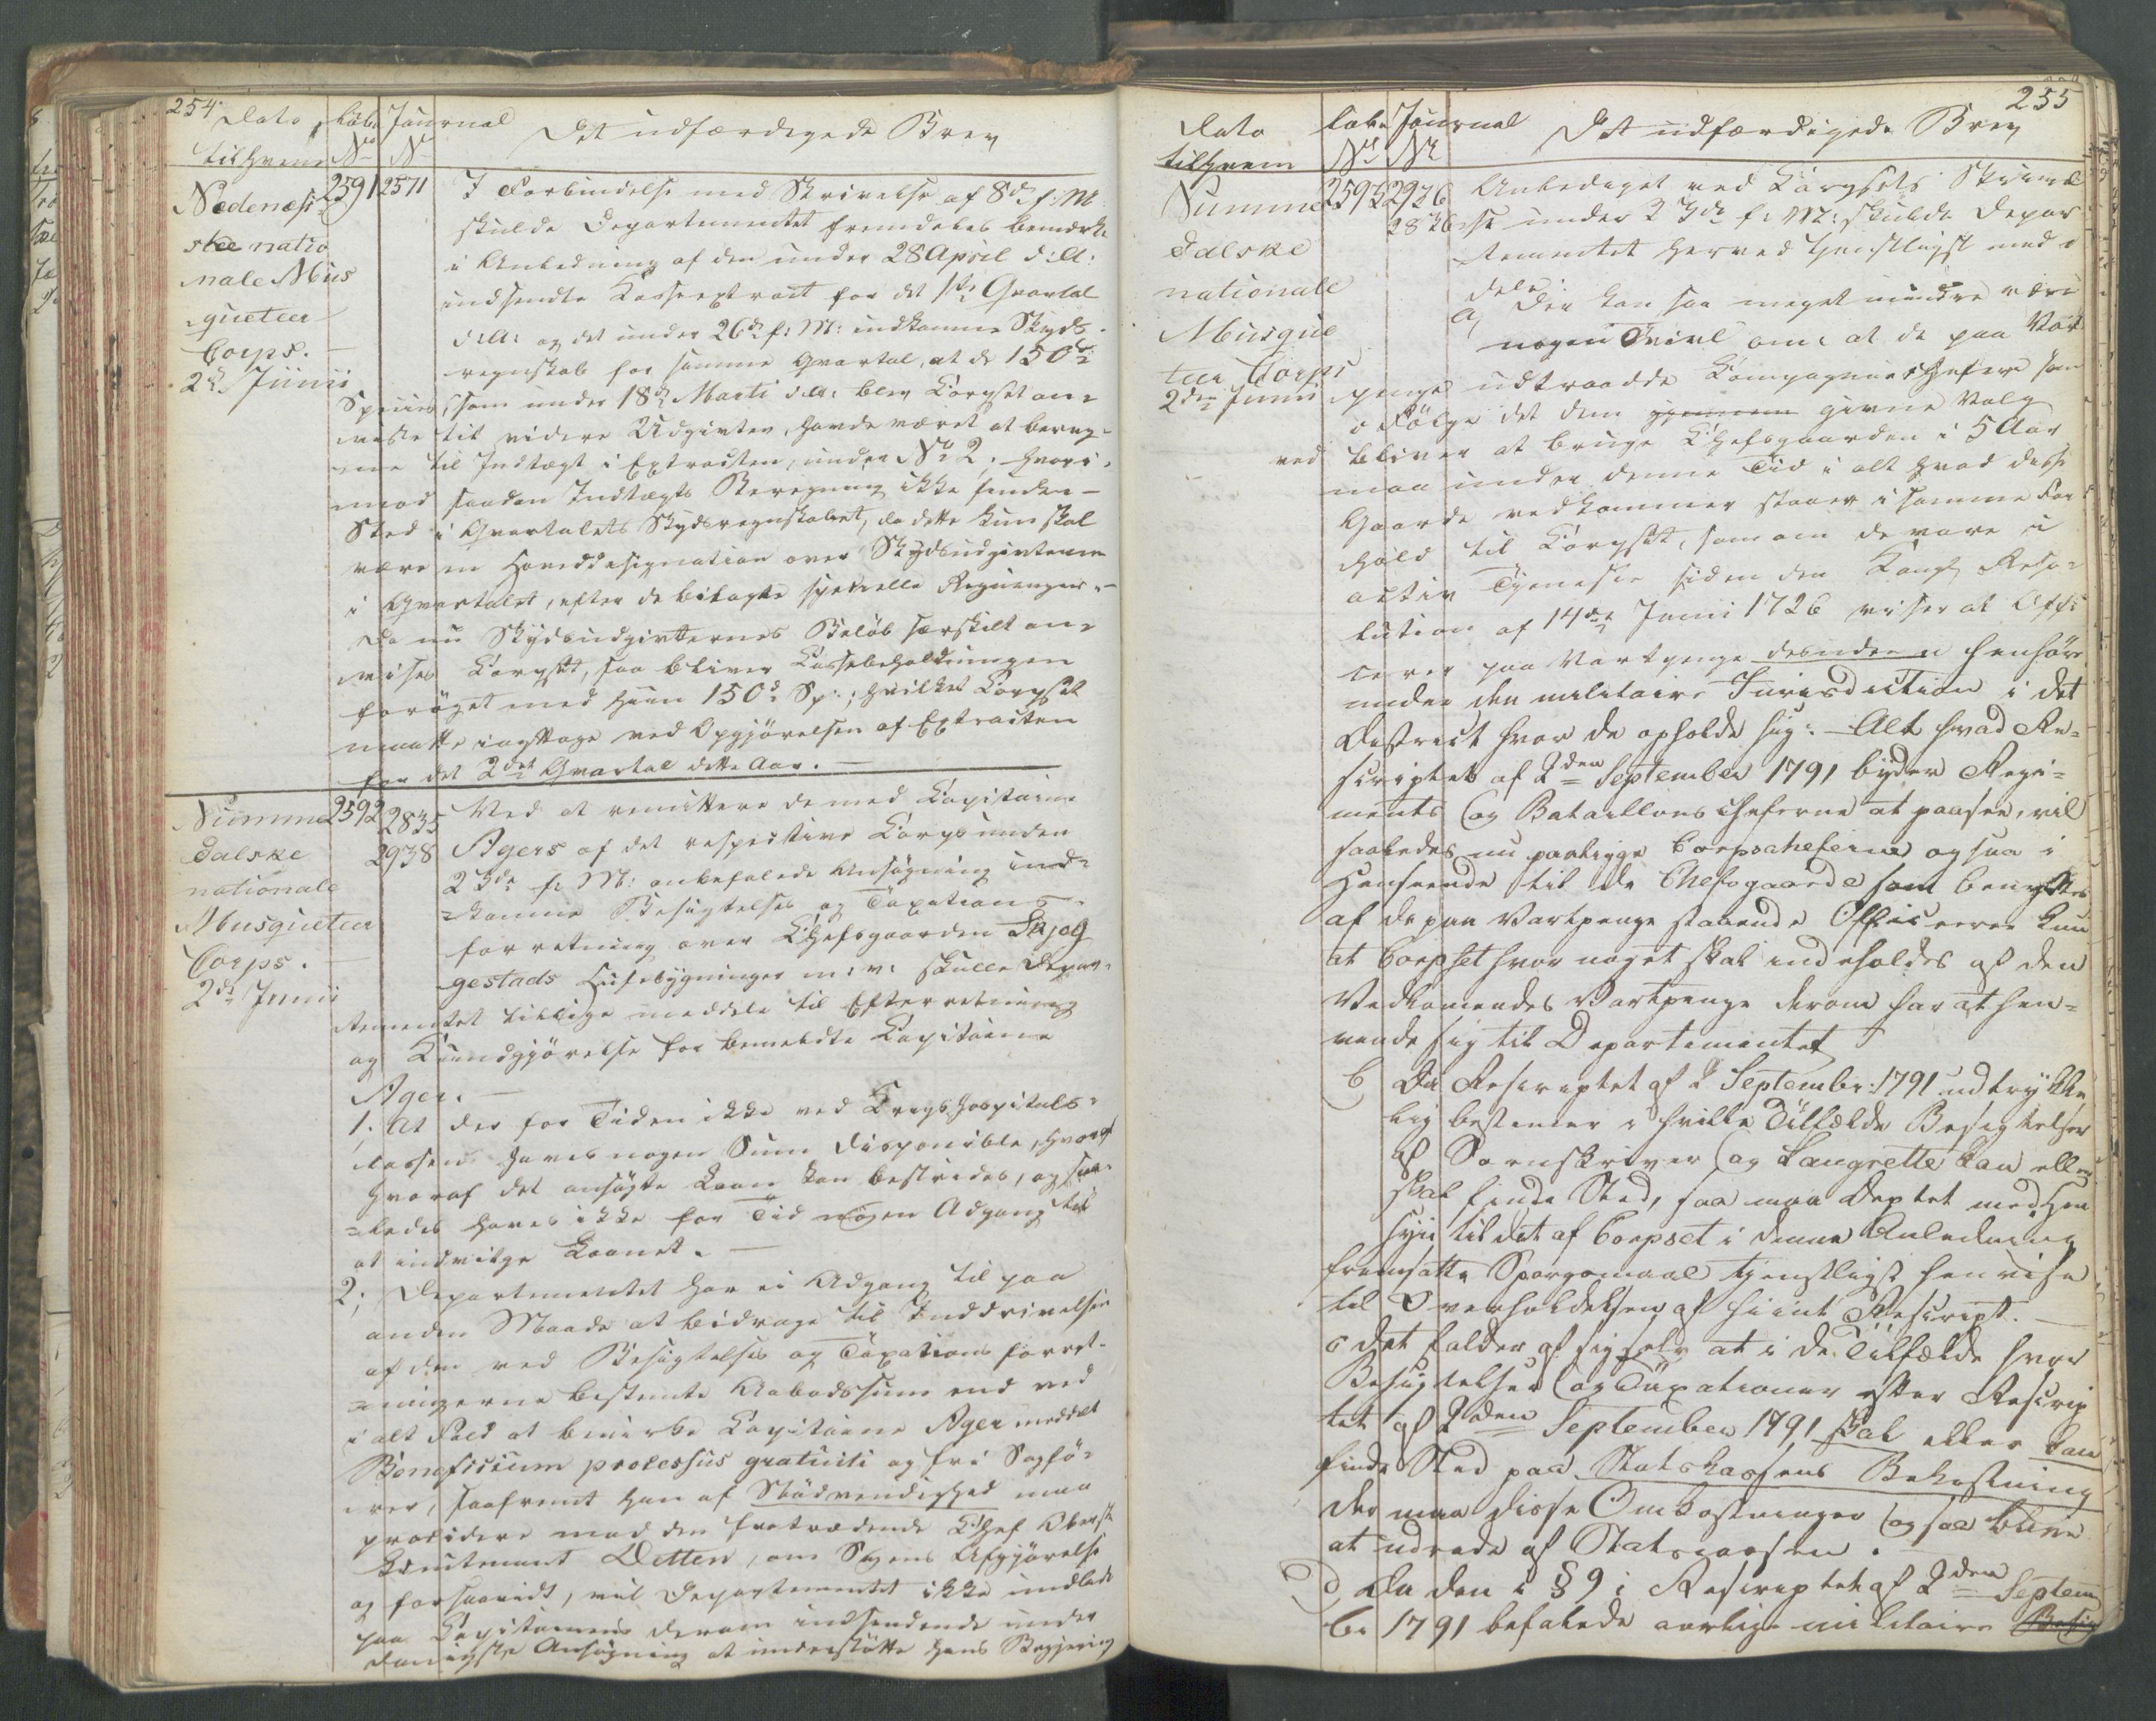 254.
Dato Løbe Journal Det udfærdigede Brev
til hvem No No
Nedenæsi
ske natio
nale Mus
queteer
Corps.
2d Junii
2591 2571 I Forbindelse med Skrivelse af 8de f: M
skulde Departementet fremdeles bemærke
i Anledning af den under 28 April d: A:
indsendte Kasseextract for det 1ste Qvartal
d: A: og det under 26de f: M: indkomne Skyds-
regnskab for samme Qvartal, at de 150 d
Species, som under 18de Marti d: A: blev Corpset an-
viste til videre Udgivter, havde været at bereg-
ne til Indtægt i Extracten, under No 2; hvori-
mod saadan Indtægts Beregning ikke finder
Sted i Qvartalets Skydsregnskabet, da dette kun skal
være en Hoveddesignation over Skydsudgivterne
i Qvartalet, efter de bilagte specielle Regninger.
Da nu Skydsudgivternes Beløb særskilt an-
vises Corpset, saa bliver Cassebeholdningen
forøget med hiin 150 d Sp:, hvilket Corpset
maatte iagttage ved Opgjørelsen af Extracten
for det 2det Qvartal dette Aar. —
Numme
dalske
nationale
Musqueteer
Corps.
2de Junii
2592 2835
2938
Ved at remittere de med Capitaine
Agers af det respective Corps under
23de f: M: anbefalede Ansøgning ind-
komne Besigtelses og Taxations-
forretning over Chefsgaarden Skjeg
gestads Huusebygninger m: v: skulle Depar-
tementet tillige meddele til Efterretning
og Kundgjørelse for bemeldte Capitaine
Ager. —
1, At der for Tiden ikke ved Krigshospitals-
cassen haves nogen Sum disponible,
hvoraf det ansøgte Laan kan bestrides, og saa-
ledes haves ikke for Tid nogen Adgang til
at indvilge Laanet. —
2, Departementet har ei Adgang til paa
anden Maade at bidrage til Inddrivelsen
af den ved Besigtelses og Taxations forret-
ningerne bestemte Aabodssum end ved
i alt Fald at bevirke Capitaine Ager meddelt
Beneficium processus gratuiti og fri Sagfø-
rer, saafremt han af Nødvendighed maa
procedere mod den fratrædende Chef Oberst
Lieutenant Ditten, om Sagens Afgjørelse
og forsaavidt, vil Departementet ikke undlade
paa Capitainens derom indsendende under
danigste Ansøgning at understøtte hans Begjering
255
Dato Løbe Journal Det udfærdigede Brev
til hvem No No
Numme
dalske
nationale
Musque
teer Corps
2den Junii
2593 2926
2836
Anledniget ved Corpsets Skrivel
se under 23de f: M: skulde Depar
tementet herved tjenstligst med
dele
a, Der kan saa meget mindre være
nogen Tvivl om at de paa Vart
penge udtraadte Compagniechefer som
i Følge det dem givne Valg
ved bliver at bruge Chefsgaarden i 5 Aar
maa under denne Tid i alt hvad disse
Gaarde vedkommer staaer i samme For
hold til Corpset, som om de vare i
activ Tjeneste siden den Kongl Reso-
lution af 14de Junii 1726 viser at Offi
cerer paa Vartpenge desuden henhøre
under den militaire Jurisdiction i det
District hvor de opholde sig: — Alt hvad Re-
scriptet af 2den September 1791 byder Regi-
ments og Bataillons cheferne at paasee, vil
saaledes nu paaligge Corpscheferne ogsaa i
Henseende til de Chefsgaarde som benyttes
af de paa Vartpenge staaende Officerer kun
at Corpset hvor noget skal indeholdes af den
Vedkomendes Vartpenge derom har at hen-
vende sig til Departementet
b Da Rescriptet af 2 September: 1791 udtrykke
lig bestemer i hvilke Tilfælde Besigtelser
af Sorenskriver og Laugrette kan eller
skal finde Sted, saa maa Deptet med Hen
syn til det af Corpset i denne Anledning
fremsatte Spørgsmaal tjenstligst henvise
til Overholdelsen af hiint Rescript. —
c Det falder af sig selv at i de Tilfælde hvor
Besigtelser og Taxationer efter Rescrip
tet af 2den September 1791 skal eller kan
finde Sted paa Statskassens Bekostning
der maa disse Omkostninger ogsaa blive
at udrede af Statscassen.
d, Da den i § 9 i Rescriptet af 2den Septem
be 1791 befalede aarlige militaire Besig